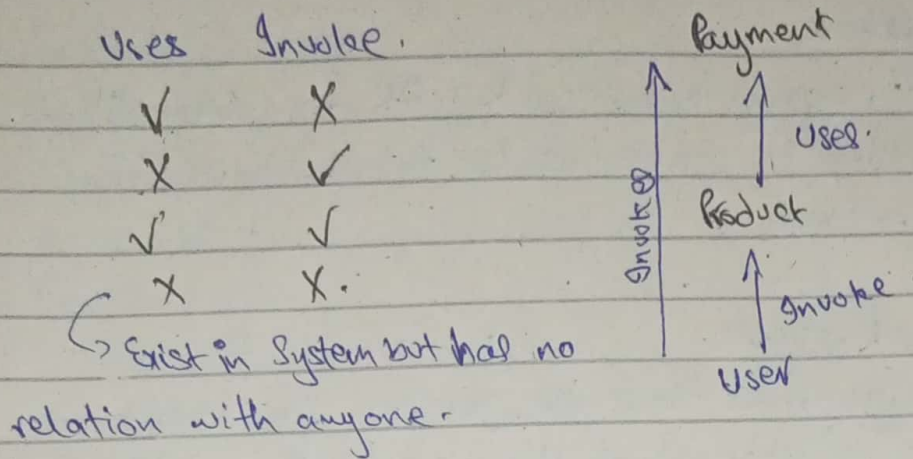 Uses Invoke.
✓ X
X ✓
✓ ✓
X X.
Exist in System but has no
relation with anyone.
Payment
Uses.
Product
Invoke
User
Invokes